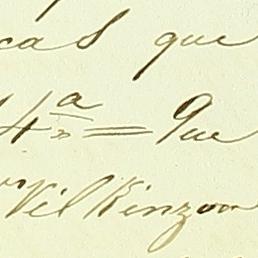 cas que
4ª = Que
Vilkinzon